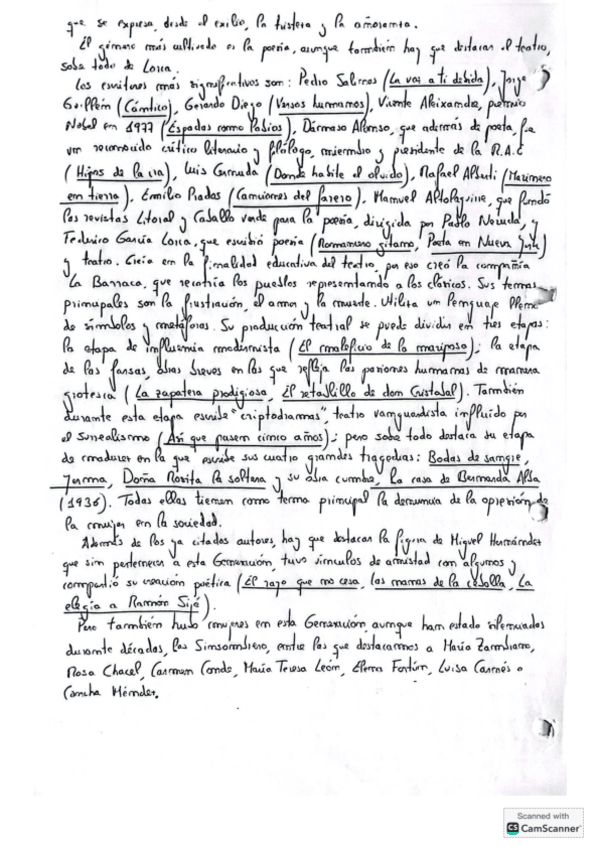 que se expresa, desde el exilio, la tristeza y la añoranza.
El género más cultivado es la poesía, aunque también hay que destacar el teatro,
sobre todo de Lorca.
Los escritores más significativos son: Pedro Salinas (La voz a ti debida), Jorge
Guillén (Cántico), Gerardo Diego (Versos humanos), Vicente Aleixandre, premio
Nobel en 1977 (Espadas como labios), Dámaso Alonso, que además de poeta, fue
un reconocido crítico literario y filólogo, miembro y presidente de la R.A.E
(Hijos de la ira), Luis Cernuda (Donde habite el olvido), Rafael Alberti (Marinero
en tierra), Emilio Prados (Canciones del farero), Manuel Altolaguirre, que fundó
las revistas Litoral y Caballo verde para la poesía, dirigida por Pablo Neruda, y
Federico García Lorca, que escribió poesía (Romancero gitano, Poeta en Nueva York)
y teatro. Creía en la finalidad educativa del teatro, por eso creó la compañía
La Barraca, que recorría los pueblos representando a los clásicos. Sus temas
principales son la frustración, el amor y la muerte. Utiliza un lenguaje lleno
de símbolos y metáforas. Su producción teatral se puede dividir en tres etapas:
la etapa de influencia modernista (El maleficio de la mariposa); la etapa
de las farsas, obras breves en las que refleja las pasiones humanas de manera
grotesca (La zapatera prodigiosa, El retablillo de don Cristobal). También
durante esta etapa escribe "criptodramas", teatro vanguardista influido por
el surrealismo (Así que pasen cinco años); pero sobre todo destaca su etapa
de madurez en la que escribe sus cuatro grandes tragedias: Bodas de sangre,
Yerma, Doña Rosita la soltera y su obra cumbre, La casa de Bernarda Alba
(1936). Todas ellas tienen como tema principal la denuncia de la opresión de
la mujer en la sociedad.
Además de los ya citados autores, hay que destacar la figura de Miguel Hernández
que sin pertenecer a esta Generación, tuvo vínculos de amistad con algunos y
compartió su creación poética (El rayo que no cesa, Las nanas de la cebolla, La
elegía a Ramón Sijé).
Pero también hubo mujeres en esta Generación, aunque han estado silenciadas
durante décadas, las Sinsombrero, entre las que destacamos a María Zambrano,
Rosa Chacel, Carmen Conde, María Teresa León, Elena Fortún, Luisa Carnés o
Concha Méndez.
Scanned with
CS CamScanner